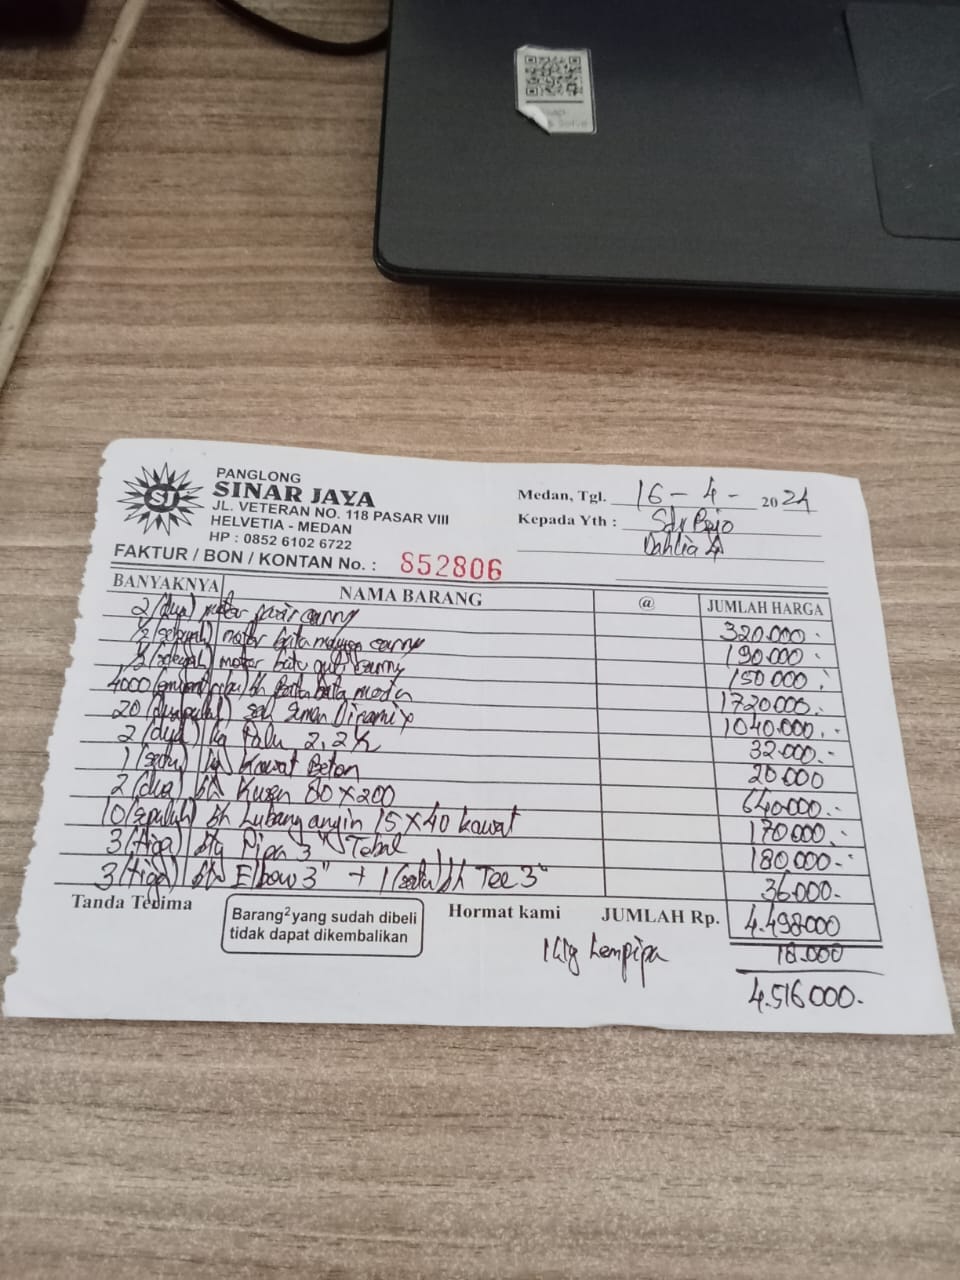 PANGLONG
SINAR JAYA
JL. VETERAN NO. 118 PASAR VIII
HELVETIA - MEDAN
HP : 0852 6102 6722
Medan, Tgl. 16 - 4 - 2024
Kepada Yth : Sdr Bejo
Dahlia 4
FAKTUR / BON / KONTAN No. : 852806
BANYAKNYA NAMA BARANG @ JUMLAH HARGA
2 (dua) motor pasir carry 320.000.-
1/2 (setengah) motor carry 190.000.-
1/2 (setengah) motor batu carry 150.000.-
4000 (empat ribu) bh Batu bata 1720000.-
20 (duapuluh) sak semen Dinamix 1040.000.-
2 (dua) kg Paku 2, 2½ 32.000.-
1 (satu) kg Kawat Beton 20.000
2 (dua) bh Kusen 80 x 200 640.000.-
10 (sepuluh) bh Lubang angin 15 x 40 kawat 170.000.-
3 (tiga) btg Pipa 3" Tebal 180.000.-
3 (tiga) bh Elbow 3" + 1 (satu) bh Tee 3" 36.000.-
Tanda Terima
Barang²yang sudah dibeli
tidak dapat dikembalikan
Hormat kami
JUMLAH Rp. 4.498.000
1 klg Lempipa 18.000
4.516.000.-